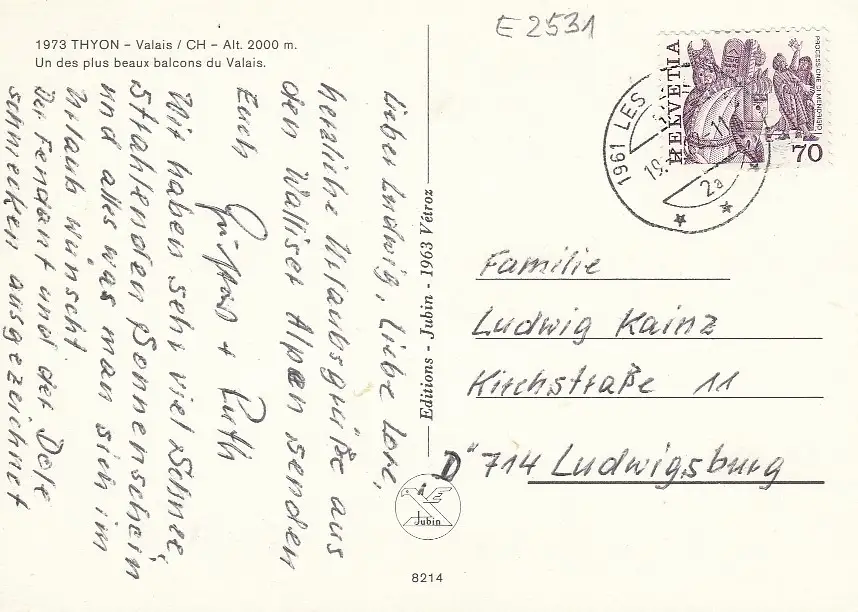 1973 THYON – Valais / CH – Alt. 2000 m.
Un des plus beaux balcons du Valais.
Lieber Ludwig, liebe Lore,
herzliche Urlaubsgrüße aus
den Walliser Alpen senden
Euch
Gustav + Ruth
Wir haben sehr viel Schnee,
strahlenden Sonnenschein
und alles was man sich im
Urlaub wünscht.
Der Fendant und der Dole
schmecken ausgezeichnet
Editions - Jubin - 1963 Vétroz
Jubin
8214
E 2531
HELVETIA
PROCESSIONE DI MENDRISIO
70
1961 LES
19.
2a
Familie
Ludwig Kainz
Kirchstraße 11
D 714 Ludwigsburg